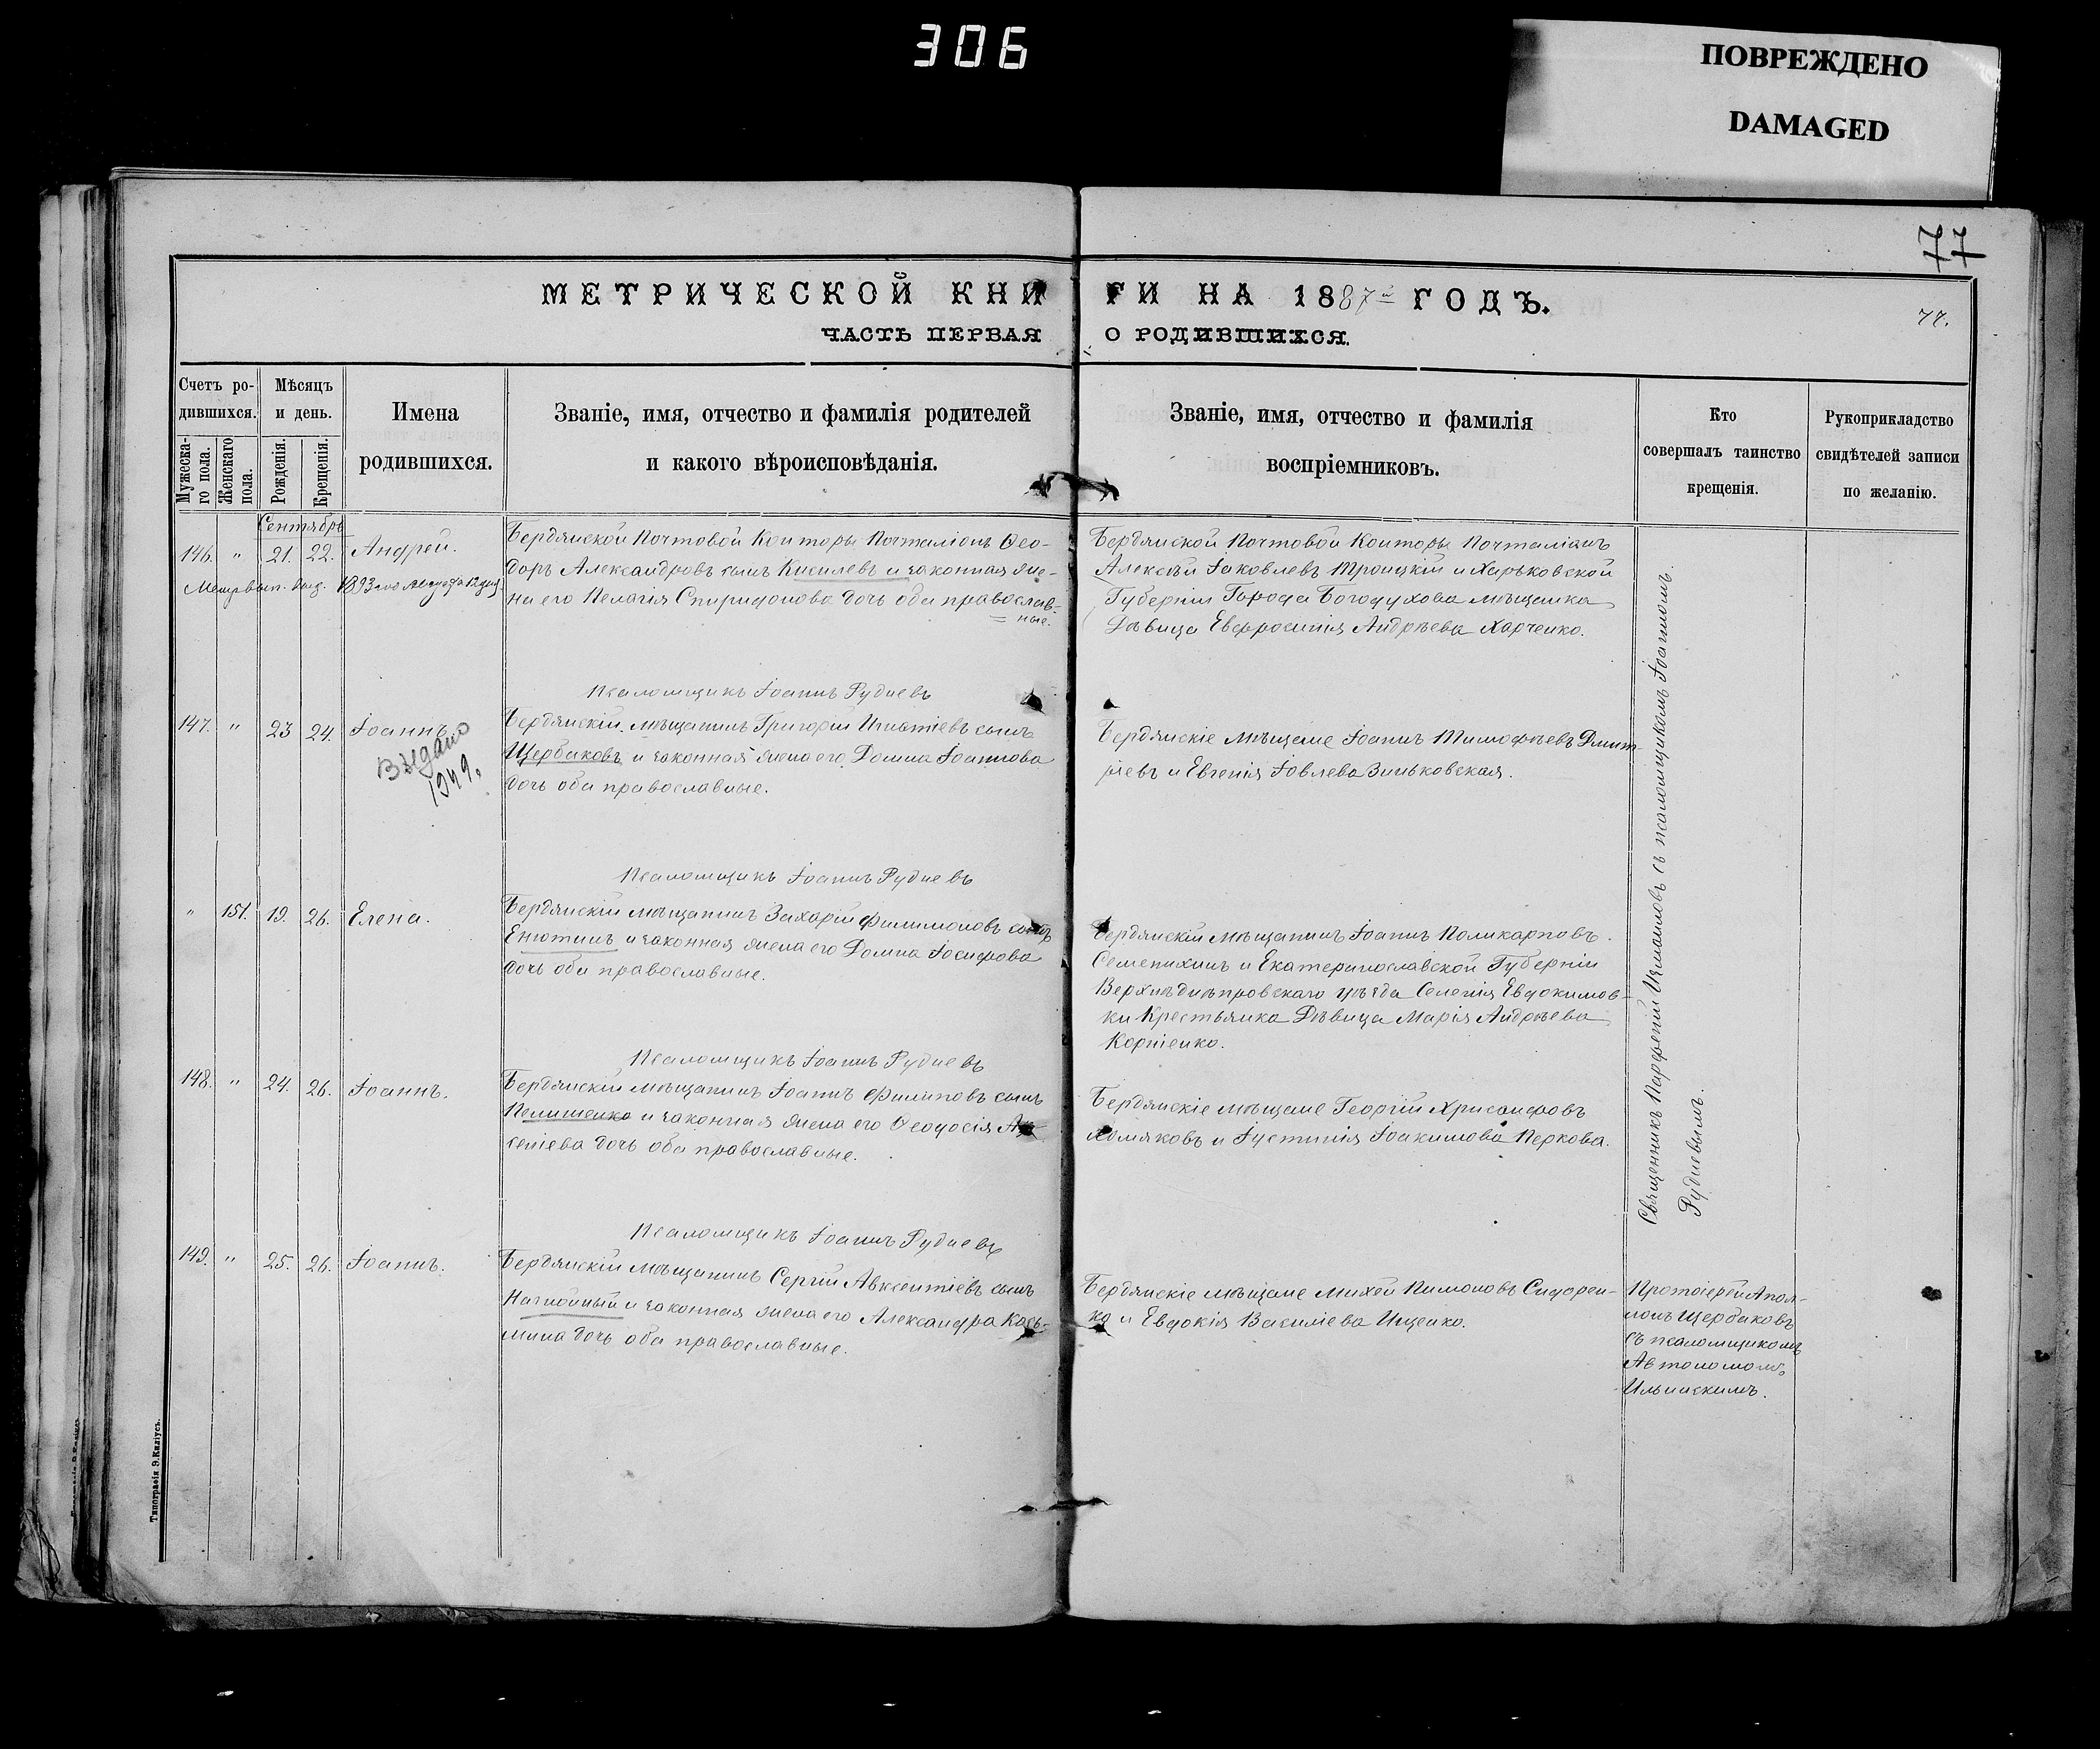 306
ПОВРЕЖДЕНО
DAMAGED
77
МЕТРИЧЕСКОЙ КНИГИ НА 1887й ГОДЪ.
77.
ЧАСТЬ ПЕРВАЯ О РОДИВШИХСЯ.
Счетъ ро-
дившихся.
Мужеска-
го пола.
Женскаго
пола.
Мѣсяцъ
и день.
Рожденія.
Крещенія.
Имена
родившихся.
Званіе, имя, отчество и фамилія родителей
и какого вѣроисповѣданія.
Званіе, имя, отчество и фамилія
воспріемниковъ.
Кто
совершалъ таинство
крещенія.
Рукоприкладство
свидѣтелей записи
по желанію.
Сентябрь
146. " 21. 22. Андрей.
Метр. вып. выд. 1893 го
Бердянской Почтовой Конторы Почталіонъ Ѳео-
доръ Александровъ сынъ Киселевъ и законная же-
на его Пелагія Спиридонова дочь оба православ-
ные.
Бердянской Почтовой Конторы Почталіонъ
Алексѣй Іаковлевъ Троицкій и Харьковской
Губерніи Города Богодухова мѣщанка
Дѣвица Евфросинія Андрѣева Харченко.
Псаломщикъ Іоаннъ Рудневъ
147. " 23 24. Іоаннъ.
Выдано
1949.
Бердянскій мѣщанинъ Григорій Игнатіевъ сынъ
Щербаковъ и законная жена его Домна Іоаннова
дочь оба православные.
Бердянскіе мѣщане Іоаннъ Тимофѣевъ Дмит-
ріевъ и Евгенія Іовлева Зиньковская.
Псаломщикъ Іоаннъ Рудневъ
" 151. 19. 26. Елена.
Бердянскій мѣщанинъ Захарій Филимоновъ сынъ
Енютинъ и законная жена его Домна Іосифова
дочь оба православные.
Бердянскій мѣщанинъ Іоаннъ Поликарповъ
Семенихинъ и Екатеринославской Губерніи
Верхнѣднѣпровскаго уѣзда Селенія Евдокимов-
ки Крестьянка Дѣвица Марія Андрѣева
Корніенко.
Псаломщикъ Іоаннъ Рудневъ
148. " 24. 26. Іоаннъ.
Бердянскій мѣщанинъ Іоаннъ Филиповъ сынъ
Пелишенко и законная жена его Ѳеодосія Ар-
сеніева дочь оба православные.
Бердянскіе мѣщане Георгій Хрисанфовъ
Хомяковъ и Іустинія Іоакимова Перкова.
Священникъ Парфеній съ псаломщикомъ Іоанномъ
Рудневымъ.
Псаломщикъ Іоаннъ Рудневъ
149. " 25. 26. Іоаннъ.
Бердянскій мѣщанинъ Сергій Авксентіевъ сынъ
и законная жена его Александра Кось-
мина дочь оба православные.
Бердянскіе мѣщане Михей Пимоновъ Сидорен-
ко и Евдокія Василіева Ищенко.
Протоіерей Апол-
лонъ Щербаковъ
съ псаломщикомъ
Автономомъ
Ильинскимъ.
Типографія Э.Киліусъ.